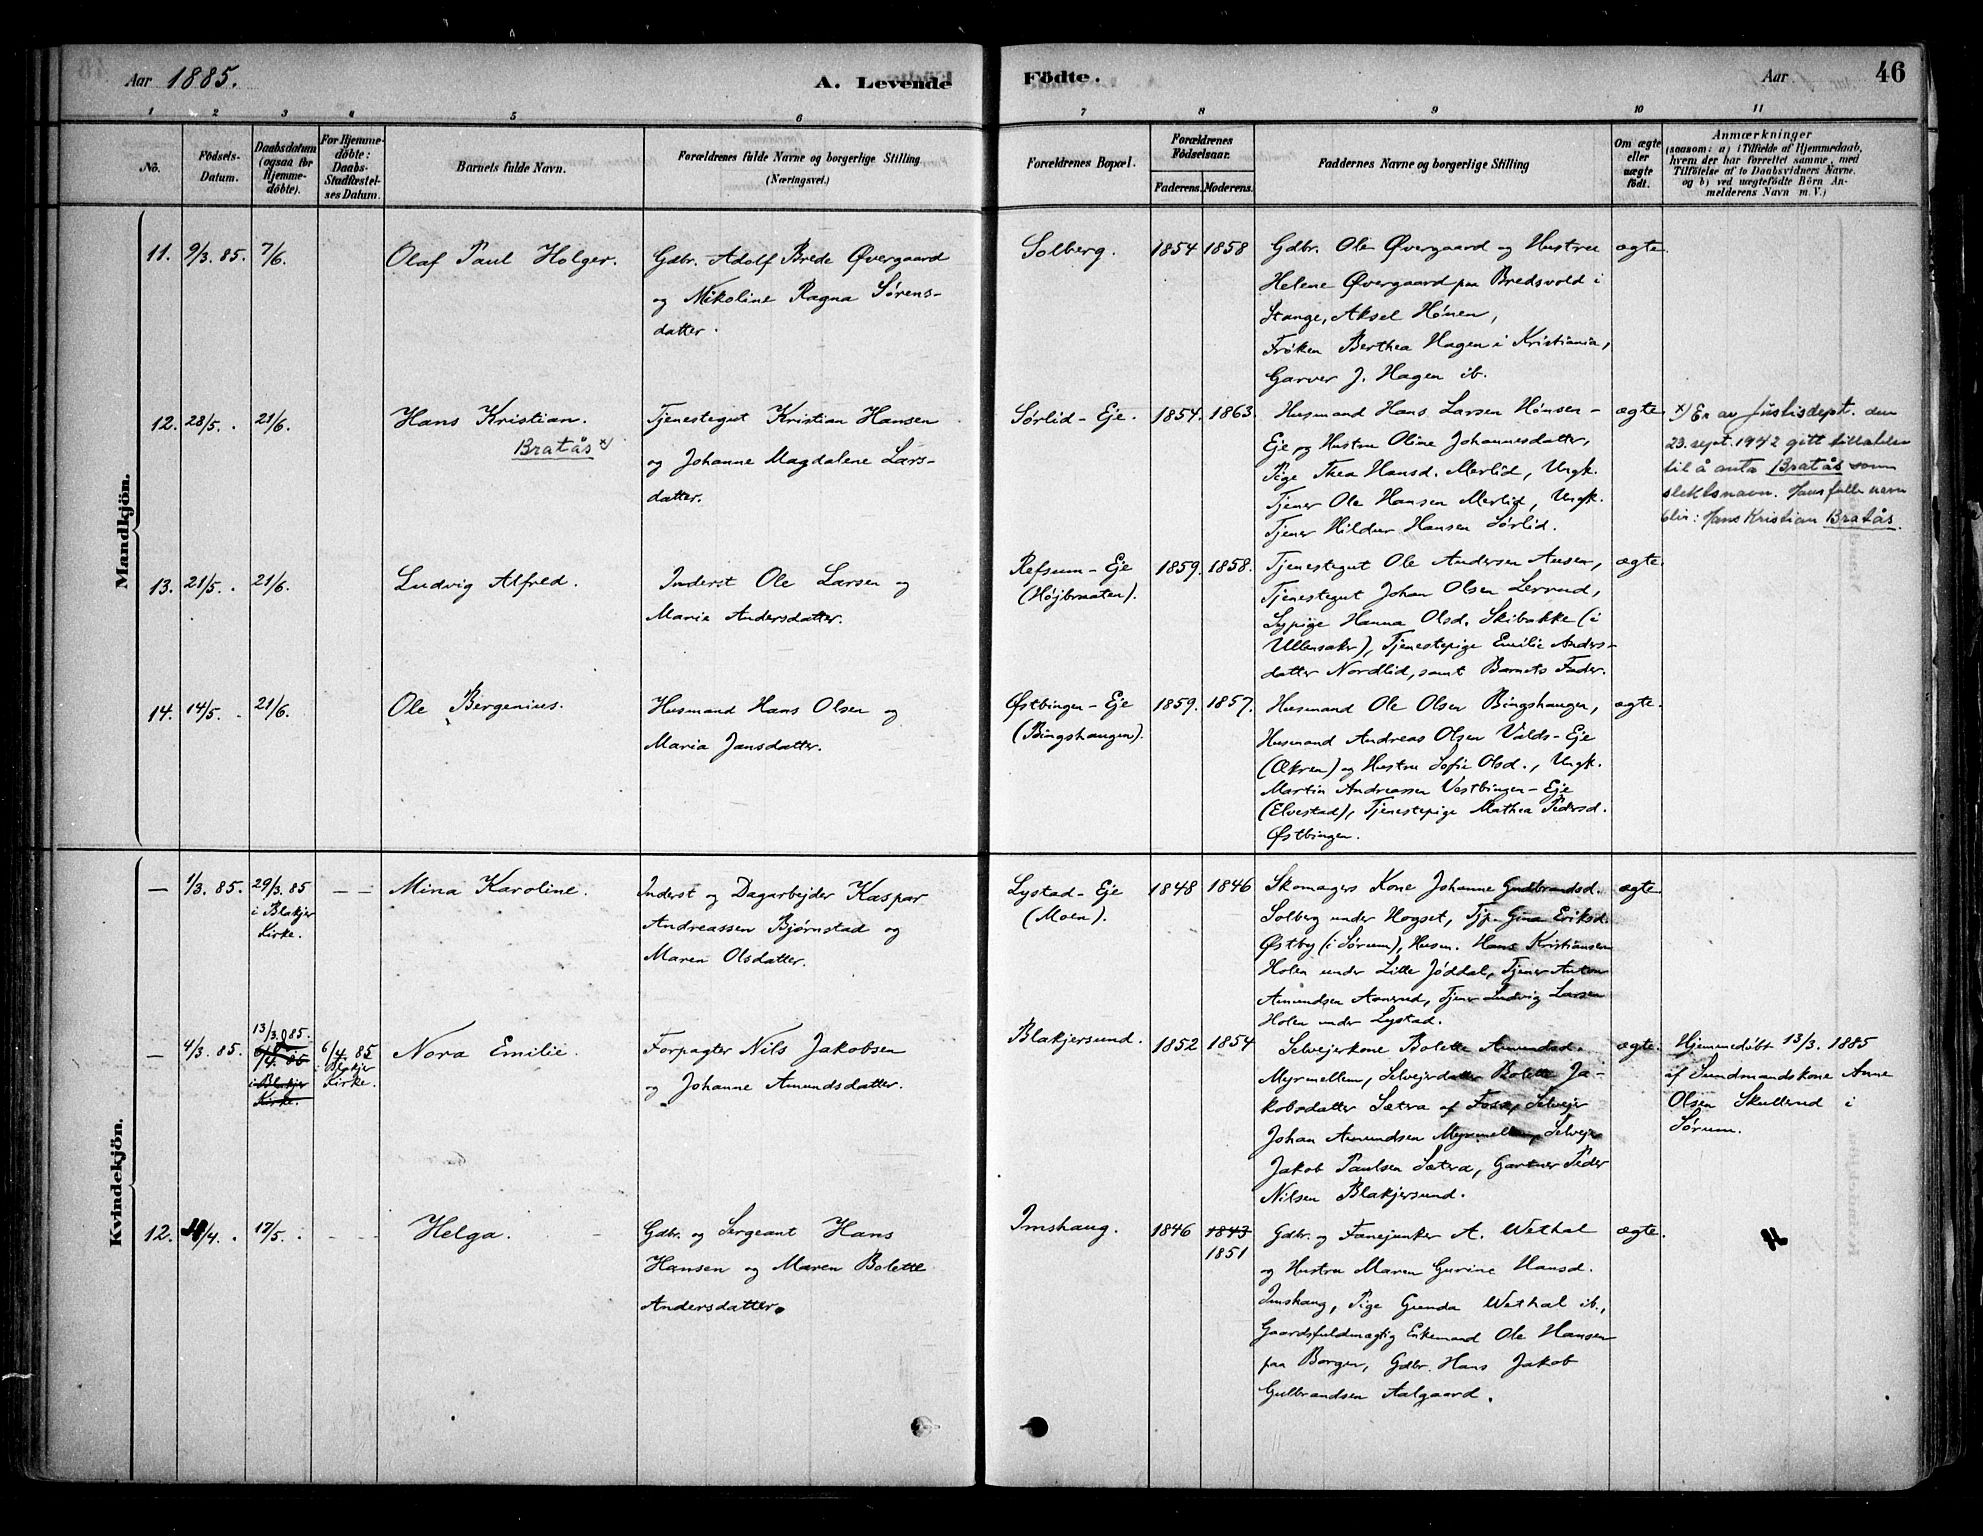 Aar 1885.
A. Levende
Födte.
Aar
46
1 2 3 4 5 6 7 8 9 10 11
No.
Födsels-
Datum.
Daabsdatum
(ogsaa for
Hjemme-
döbte).
For Hjemme-
döbte:
Daabs-
Stadfæstel-
ses Datum.
Barnets fulde Navn.
Forældrenes fulde Navne og borgerlige Stilling
(Næringsvei.)
Forældrenes Bopæl.
Forældrenes
Födselsaar.
Faderens.
Moderens.
Faddernes Navne og borgerlige Stilling
Om ægte
eller
uægte
födt.
Anmærkninger
(saasom: a) i Tilfælde af Hjemmedaab,
hvem der har forrettet samme, med
Tilföielse af to Daabsvidners Navne.
og b) ved uægtefödte Börn An-
melderens Navn m. V.)
Mandkjön.
11. 9/3. 85. 7/6.
Olaf Paul Holger.
Gdbr. Adolf Brede Øvergaard
og Nikoline Ragna Sørens-
datter.
Solberg.
1854 1858
Gdbr. Ole Øvergaard og Hustru
Helene Øvergaard paa Bredsvold i
Stange, Aksel Hønen,
Frøken Berthea Hagen i Kristiania,
Garver J. Hagen ib.
ægte.
12. 28/5. 21/6.
Hans Kristian.
Bratås x)
Tjenestegut Kristian Hansen
og Johanne Magdalene Lars-
datter.
Sørlid-Eje.
1854. 1863.
Husmand Hans Larsen Hønsen-
Eje og Hustru Oline Johannesdatter,
Pige Thea Hansd. Merlid, Ungk.
Tjener Ole Hansen Merlid, Ungk.
Tjener Hildur Hansen Sørlid.
ægte.
x) Er av Justisdept. den
23. sept. 1942 gitt tillatelse
til å anta Bratås som
slektsnavn. Hans fulle navn
blir: Hans Kristian Bratås.
13. 21/5. 21/6.
Ludvig Alfred.
Inderst Ole Larsen og
Marie Andersdatter.
Refsum-Eje
(Højbraaten).
1859. 1858.
Tjenestegut Ole Andersen Ausen,
Tjenestegut Johan Olsen Lerrud,
Sypige Hanna Olsd. Skibakke (i
Ullensaker), Tjenestepige Emilie Anders-
datter Nordlid, samt Barnets Fader.
ægte.
14. 14/5. 21/6.
Ole Bergenius.
Husmand Hans Olsen og
Maria Jansdatter.
Østbingen-Eje
(Bingshaugen).
1859. 1857.
Husmand Ole Olsen Bingshaugen,
Husmand Andreas Olsen Valds-Eje
(Økren) og Hustru Sofie Olsd., Ungk.
Martin Andreassen Vestbingen-Eje
(Elvestad), Tjenestepige Mathea Pedersd.
Østbingen.
ægte.
Kvindekjön.
— 1/3. 85. 29/3. 85
i Blakjer
Kirke.
— —
Mina Karoline.
Inderst og Dagarbejder Kaspar
Andreassen Bjørnstad og
Maren Olsdatter.
Lystad-Eje
(Moen).
1848 1846
Skomagers Kone Johanne Gudbrandsd.
Solberg under Hogset, Tjp. Gina Eriksd.
Østby (i Sørum), Husm. Hans Kristiansen
Holen under Lille Jøddal, Tjener Anton
Amundsen Aanerud, Tjener Ludvig Larsen
Holen under Lystad.
ægte.
— 4/3. 85. 13/3. 85.
6/4. 85
i Blakjer
Kirke.
6/4. 85
i Blakjer
Kirke.
Nora Emilie.
Forpagter Nils Jakobsen
og Johanne Amundsdatter.
Blakjersund.
1852 1854
Selvejerkone Bolette Amundsd.
Myrmellem, Selvejerdatter Bolette Ja-
kobsdatter Sætra af Foss, Selvejer
Johan Amundsen Myrmellem, Selvejer
Jakob Paulsen Sætra, Gartner Peder
Nilsen Blakjersund.
ægte.
Hjemmedøbt 13/3. 1885
af Sundmandskone Anne
Olsen Skullerud i
Sørum.
12. /4. 17/5.
Helga.
Gdbr. og Sergeant Hans
Hansen og Maren Bolette
Andersdatter.
Imshaug.
1846 1843
1851
Gdbr. og Fanejunker A. Wethal
og Hustru Maren Gurine Hansd.
Imshaug, Pige Gunda Wethal ib.,
Gaardsfuldmægtig Enkemand Ole Hansen
paa Borgen, Gdbr. Hans Jakob
Gulbrandsen Aalgaard.
ægte.